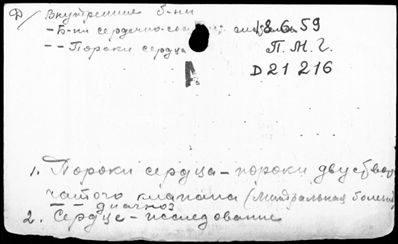 Ф/ Внутренние б-ни
- Б-ни сердечно-
- - Пороки сердца
18.6.59
П.М.Г.
D 21 216
А
1. Пороки сердца - пороки двуствор
чатого клапана (Митральная болезнь
- - диагноз
2. Сердце - исследование